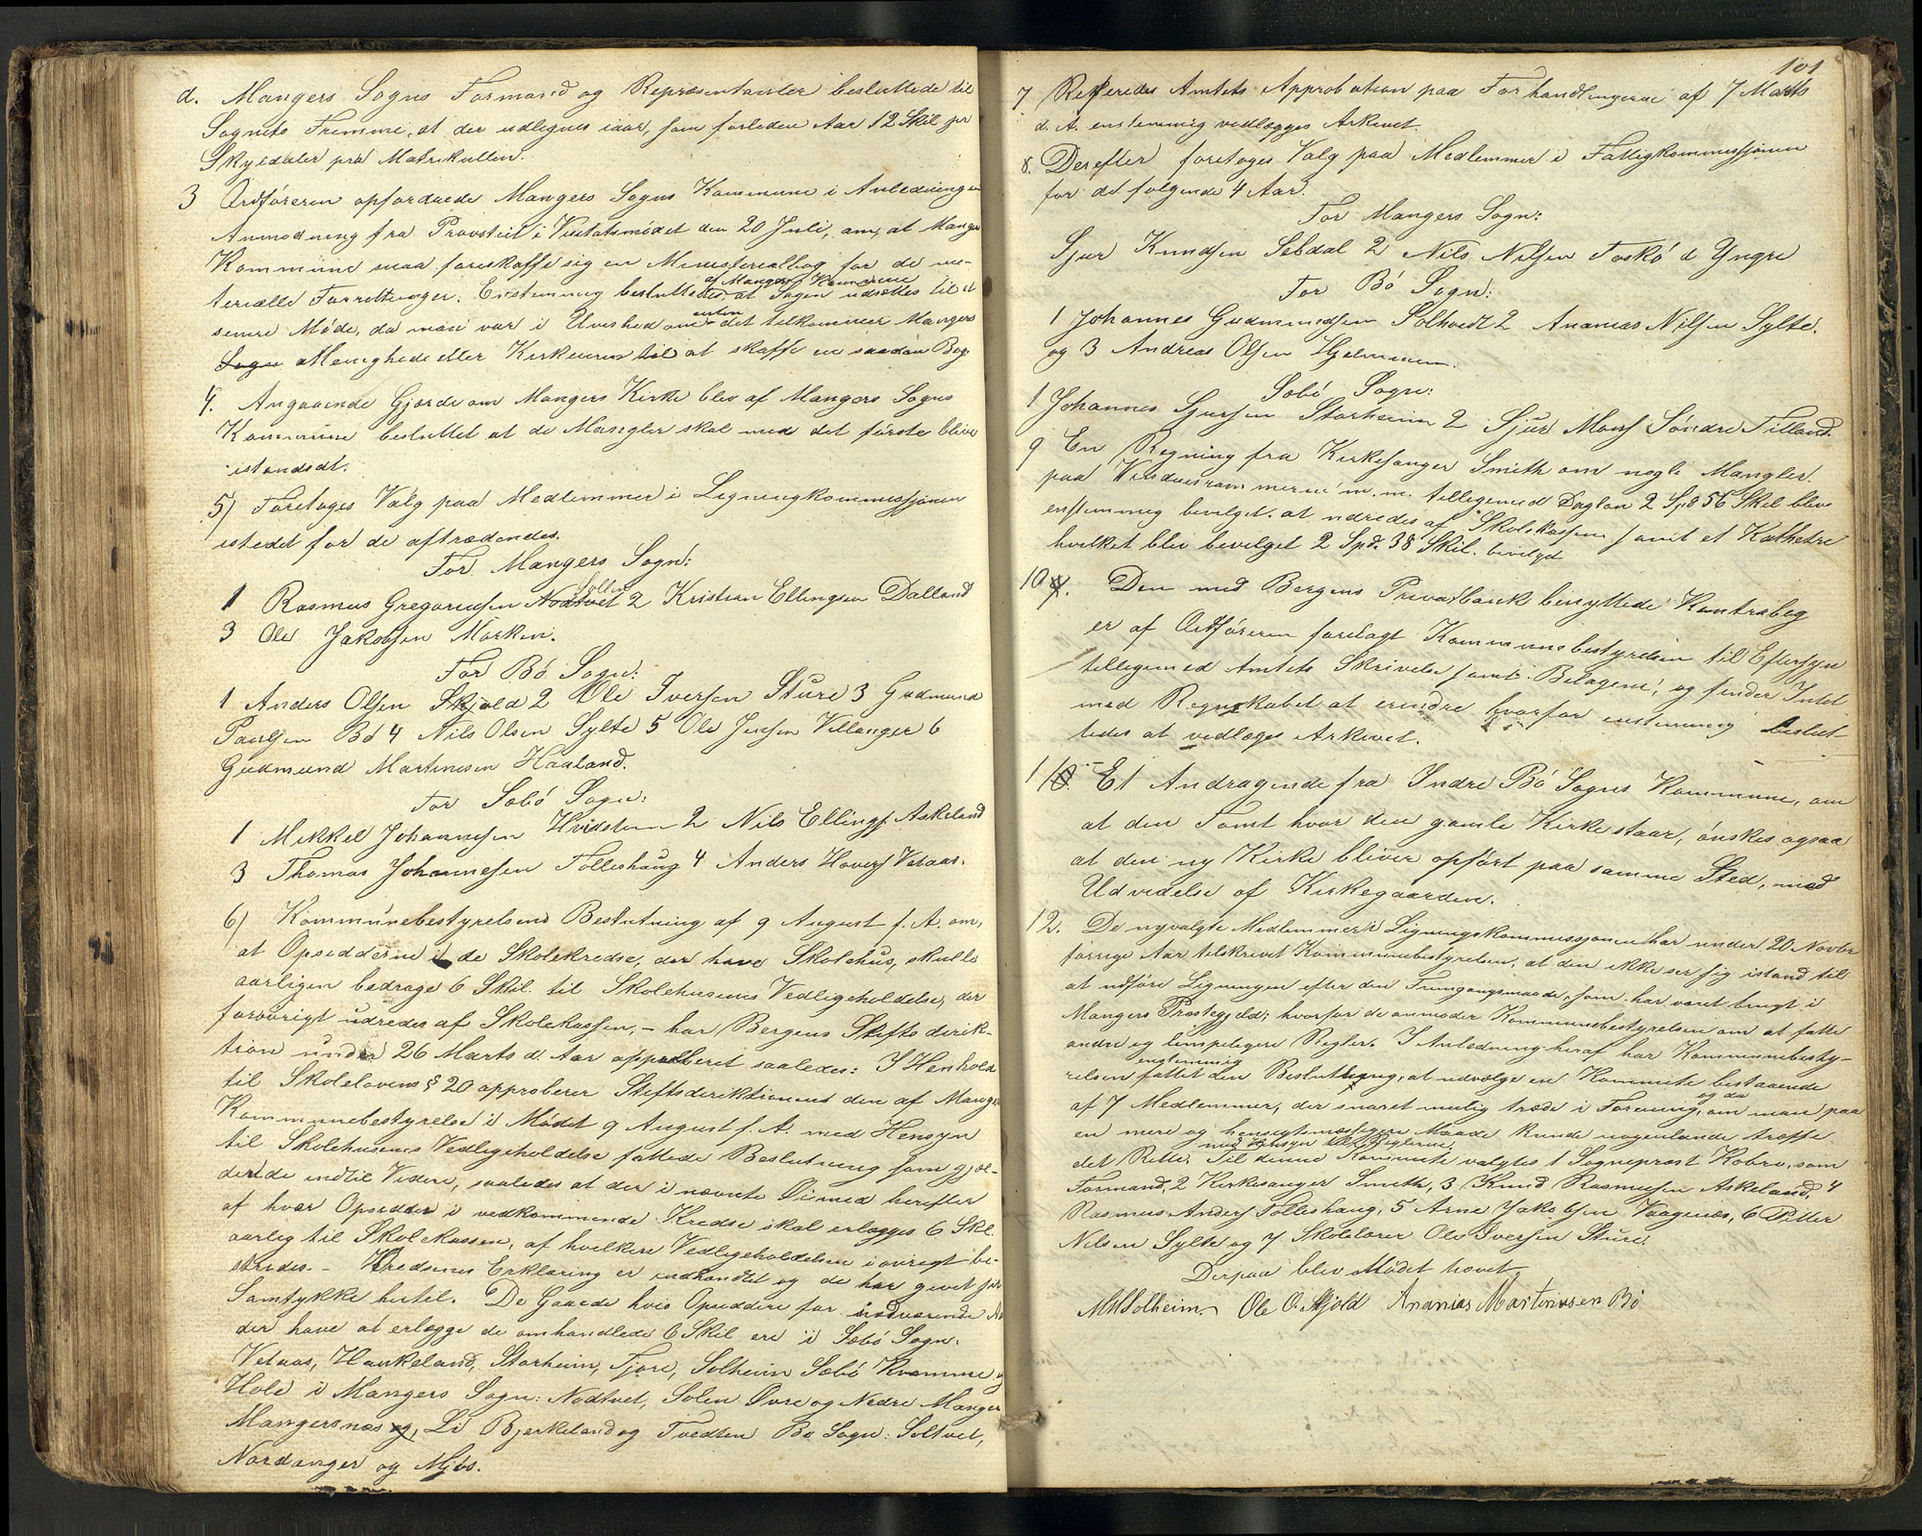 d. Mangers Sogns Formand og Repræsentanter besluttede til
Sognets Fremme, at der udlignes iaar, som forleden Aar 12 Skil pr
Skyldaler pra Matrikullen.
3 Ordføreren opfordrede Mangers Sogns Kommune i Anledning en
Anmodning fra Provstiet i Visitatsmødet den 20 Juli, om, at Manger
Kommune maa foreskaffe sig en Ministerialbog for de mi-
terielle Forretninger. Enstemmig besluttedes af Mangers Kommune at Sagen udsættes til et
senere Møde, da man var i Uvished om enten det tilkommer Mangers
Sogn Menighed eller Kirkeeieren til at skaffe en saadan Bog.
4. Angaaende Gjærde om Mangers Kirke blev af Mangers Sogns
Kommune besluttet at de Mangler skal med det første blive
istandsdt.
5) Foretoges Valg paa Medlemmer i Ligningkommissjonen
istedet for de aftrædendes.
For Mangers Sogn:
1 Rasmus Gregoriussen Nodtvet Sollen 2 Kristian Ellingsen Dalland
3 Ole Jakobsen Marken.
For Bø Sogn:
1 Anders Olsen Skjold 2 Ole Iversen Sture 3 Gudmund
Paulsen Bø 4 Nils Olsen Sylte 5 Ole Jensen Villanger 6
Gudmund Martinusen Haaland.
For Sæbø Sogn:
1 Mikkel Johannesen Hvidsteen 2 Nils Ellings. Askeland
3 Thomas Johannesen Tolleshaug 4 Anders Havers Vetaas.
6) Kommunebestyrelsens Beslutning af 9 August f. A. om,
at Opsidderne i de Skolekredse, der have Skolehus, skulle
aarligen bedrage 6 Skil. til Skolehusenes Vedligeholdelse, der
forøvrigt udredes af Skolekassen, – har Bergens Stiftsdirik-
tion under 26 Marts d. Aar approberet saaledes: I Henhold
til Skolelovens § 20 approberer Stiftsdirektionens den af Manger
Kommunebestyrelse i Mødet 9 August f. A. med Hensyn
til Skolehusenes Vedligeholdelse fattede Beslutning som gjæl-
dende indtil Videre, saaledes at der i nævnte Øiemed herefter
af hver Opsidder i vedkommende Kredse skal erlægges 6 Skil.
aarlig til Skolekassen, af hvilken Vedligeholdelsen iøvrigt be-
strides. – Kredsenes Erklæring er indhandlet og de har givet sit
Samtykke hertil. De Gaarde hvis Opsiddere for nærværende Aar
der have at erlægge de omhandlede 6 Skil ere i Sæbø Sogn:
Vetaas, Haukeland, Storheim, Fjøre, Solheim Sæbø Kvamme og
Hole i Mangers Sogn: Nodtvet, Solen Øvre og Nedre Manger
Mangersnæs og, Li Bjerkeland og Tvedten Bø Sogn: Soltvet,
Nordanger og Mjøs.
101
7 Refereredes Amtets Approbation paa Forhandlingerne af 7 Marts
d. A. enstemmig vedlægges Arkivet.
8. Derefter foretoges Valg paa Medlemmer i Fattigkommissjonen
for de følgende 4 Aar.
For Mangers Sogn:
Sjur Knudsen Sebdal 2 Nils Nilsen Toskø d Yngre
For Bø Sogn:
1 Johannes Gudmundsen Solhvedt 2 Ananias Nilsen Sylte,
og 3 Andreas Olsen Hjelmmen.
Sæbø Sogn:
1 Johannes Sjursen Storheim 2 Sjur Mons Søndre Titland.
9 En Regning fra Kirkesanger Smith om nogle Mangler
paa Vinduesrammerne m. m. tilligemed Dagløn 2 Spd 56 Skil blev
enstemmig bevilget at udredes af Skolekassen samt et Kathetre
hvilket blev bevilget 2 Spd. 38 Skil. bevilgd
10. Den med Bergens Privatbank benyttede Kontrabog
er af Ordføreren forelagt Kommunebestyrelsen til Eftersyn
tilligemed Amtets Skrivelse samt Bilagene, og finder Intet
med Regnskabet at erindre hvorfor enstemmig beslut-
tedes at vedlægges Arkivet.
11. Et Andragende fra Indre Bø Sogns Kommune, om
at den Tomt hvor den gamle Kirke staar, ønskes ogsaa
at den ny Kirke bliver opført paa samme Sted, med
Udvidelse af Kirkegaarden.
12. De nyvalgte Medlemmer i Ligningskommissjonen har under 20 Novbr
forrige Aar tilskrevet Kommunebestyrelsen, at den ikke ser sig istand til
at udføre Ligningen efter den Fremgangsmaade, som har været brugt i
Mangers Præstegjeld; hvorfor de anmoder Kommunebestyrelsen om at fatte
andre og lempeligere Regler. I Anledning heraf har Kommunebesty-
relsen enstemmig fattet den Beslutning, at udvælge en Kommite bestaaende
af 7 Medlemmer, der snarest mulig træde i Forening, og da om man paa
en mere og hensigtsmæssigere Maade kunde nogenlunde træffe
det Rette med Hensyn til Reglerne. Til denne Kommite valgtes 1 Sogneprest Kobro, som
Formand, 2 Kirkesanger Smith, 3 Knud Rasmussen Askeland, 4
Rasmus Anders Tolleshaug, 5 Arne Jakobsen Vaagenæs, 6 Peter
Nilsen Sylte og 7 Skolelærer Ole Iversen Sture.
Derpaa blev Mødet hævet
MHSolheim. Ole O. Skjold Ananias Martinussen Bø